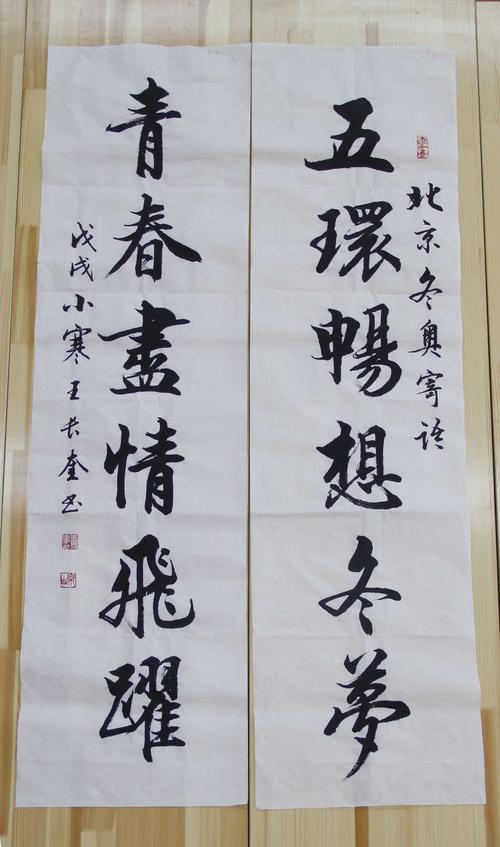 北京冬奥寄语
五環暢想冬夢
青春盡情飛躍
戊戌小寒王长奎书